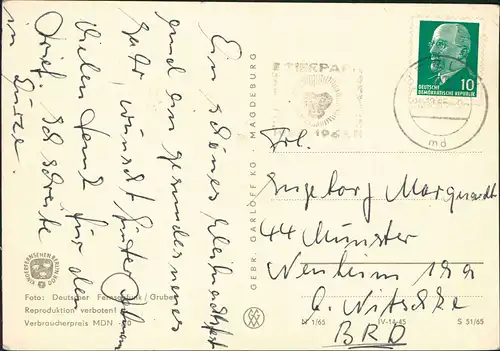 Ein schönes Weihnachtsfest
und ein gesundes neues
Jahr, wünscht Günter
Vielen Dank für den
Brief. Ich schreibe
in Kürze.
KINDERFERNSEHEN
Foto: Deutscher Fernsehfunk / Gruber
Reproduktion verboten!
Verbraucherpreis MDN
GEBR. GARLOFF KG MAGDEBURG
TIERPARK
10
DEUTSCHE
DEMOKRATISCHE REPUBLIK
md
Frl.
Ingeborg Marquardt
44 Münster
b. Witschke
BRD
IV-14-45
S 51/65